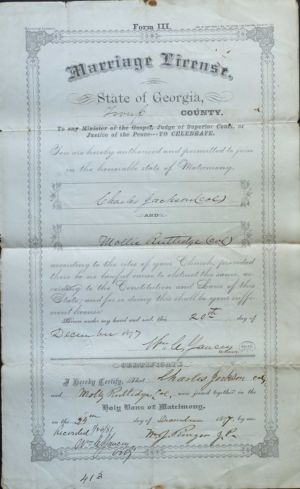 Form III.
Marriage License.
State of Georgia,
Troup COUNTY.
To any Minister of the Gospel, Judge of Superior Court, or
Justice of the Peace—TO CELEBRATE.
You are hereby authorized and permitted to join
in the honorable state of Matrimony,
Charles Jackson (Col)
AND
Mollie Rutledge (Col)
according to the rites of your Church, provided
there be no lawful cause to obstruct the same, ac-
cording to the Constitution and Laws of this
State; and for so doing this shall be your suffi-
cient license.
Given under my hand and seal, this 20th day of
December
Wm. C. Yancey
CERTIFICATE
I Hereby Certify, that Charles Jackson Col,
and Molly Rutledge Col, were joined together in the
Holy Bans of Matrimony.
on the day of December by me
Recorded
Wm C Yancey J.P.
Ordy
413